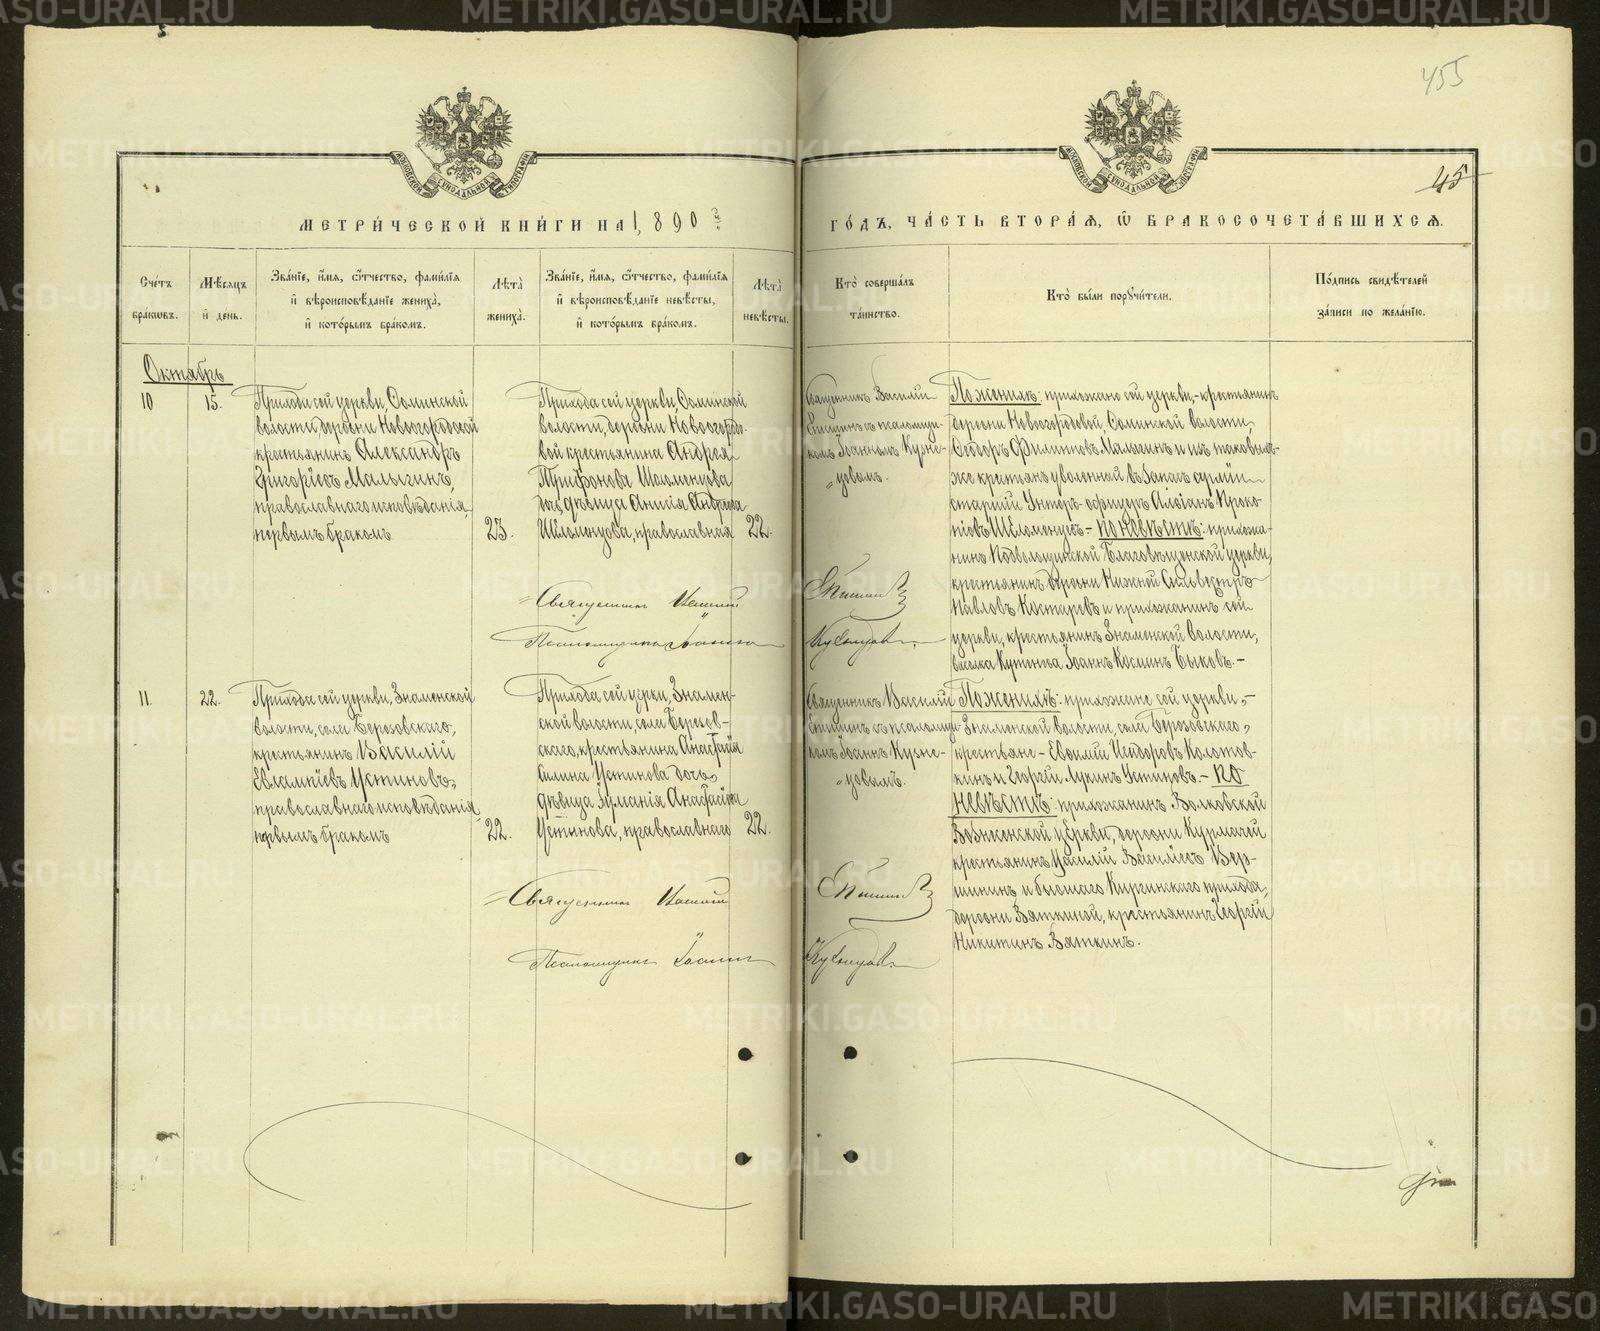 455
45
МОСКОВСКОЙ СѴНОДАЛЬНОЙ ТИПОГРАФІИ
МОСКОВСКОЙ СѴНОДАЛЬНОЙ ТИПОГРАФІИ
МЕТРИЧЕСКОЙ КНИГИ НА 1890 й
ГОДЪ, ЧАСТЬ ВТОРАЯ, Ѡ БРАКОСОЧЕТАВШИХСЯ.
Счетъ браковъ.
Мѣсяцъ и день.
Званіе, имя, отчество, фамилія
и вѣроисповѣданіе жениха,
и которымъ бракомъ.
Лѣта жениха.
Званіе, имя, отчество, фамилія
и вѣроисповѣданіе невѣсты,
и которымъ бракомъ.
Лѣта невѣсты.
Кто совершалъ
таинство.
Кто были поручители.
Подпись свидѣтелей
записи по желанію.
Октябрь
10
15.
Прихода сей церкви,
волости, деревни Новогородской
крестьянинъ Александръ
Григорьевъ Малыгинъ,
православнаго исповѣданія,
первымъ бракомъ
23.
Прихода сей церкви,
волости, деревни Новогородо-
вой крестьянина Андрея
Трифонова
дочь, дѣвица Анисія Андреева
Шеломенцова, православная
22.
Священникъ Василій
Епишинъ съ псаломщи-
комъ Іоанномъ Кузне-
цовымъ.
По женихѣ: прихожане сей церкви,- крестьянинъ
деревни Новогородовой, волости,
Ѳедоръ Филипповъ Малыгинъ и изъ таковыхъ-
же крестьянъ уволенный въ запасъ арміи
старшій Унтеръ-офицеръ Проко-
піевъ Шеломенцевъ- по невѣстѣ: прихожа-
нинъ Благовѣщенской церкви,
крестьянинъ деревни Нижней
Павловъ Костаревъ и прихожанинъ сей
церкви, крестьянинъ Знаменской волости,
Іоаннъ Косминъ Быковъ.-
Священникъ Василій Епишинъ
Псаломщикъ Іоаннъ Кузнецовъ.
11
22.
Прихода сей церкви, Знаменской
волости, села Березовскаго,
крестьянинъ Василій
Евлампіевъ Устиновъ,
православнаго исповѣданія,
первымъ бракомъ
22.
Прихода сей церкви, Знамен-
ской волости, села Березов-
скаго, крестьянина Анастасія
Устинова дочь,
дѣвица Іуліанія Анастасіева
Устинова, православнаго
22.
Священникъ Василій
Епишинъ съ псаломщи-
комъ Іоанн Кузне-
цовымъ.
По женихѣ: прихожане сей церкви,-
Знаменской волости, села Березовскаго,
крестьяне- Евфимій Исидоровъ Колотов-
кинъ и Георгій Лукинъ Устиновъ.- по
невѣстѣ: прихожанинъ Волковской
Вознесенской церкви, деревни Курмачей
крестьянинъ Василій Васильевъ Вер-
шининъ и бывшаго Киргинскаго прихода,
деревни Вяткиной, крестьянинъ Георгій
Никитинъ Вяткинъ.
Священникъ Василій Епишинъ
Псаломщикъ Іоаннъ Кузнецовъ.
METRIKI.GASO-URAL.RU